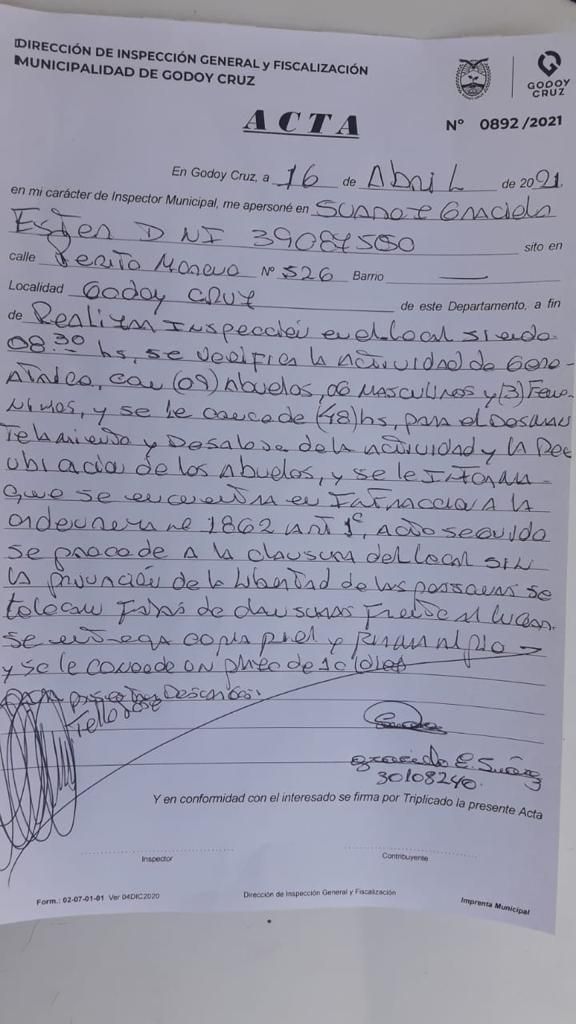 DIRECCIÓN DE INSPECCIÓN GENERAL y FISCALIZACIÓN
MUNICIPALIDAD DE GODOY CRUZ
GODOY CRUZ
ACTA
N° 0892 /2021
En Godoy Cruz, a 16 de Abril de 2021.
en mi carácter de Inspector Municipal, me apersoné en Suarez Graciela
Ester DNI sito en
calle Perito Moreno N° 526 Barrio —
Localidad Godoy Cruz de este Departamento, a fin
de Realizar Inspección en el local siendo
08:30 hs, se verifica la actividad de Gere-
atrico, con (09) Abuelos, 06 Masculinos y (3) Feme-
ninos, y se le concede (48) hs, para el Desman
telamiento y Desalojo de la actividad y la Ree
ubicacia de los Abuelos, y se le Informa
que se encuentra en Infraccion A la
ordenanza nº 1862 Art 1º, Acto seguido
se procede A la clausura del local SIN
la privación de la Libertad de las personas se
colocan Fajas de clausuras Frente al lugar.
se entrega copia fiel y Firman al pie
y se le concede un plazo de 10 dias
para presentar Descargo.
Tello Jose
Graciela E. Suárez
30108240.
Y en conformidad con el interesado se firma por Triplicado la presente Acta
Inspector
Contribuyente
Form.: 02-07-01-01 Ver 04DIC2020
Dirección de Inspección General y Fiscalización
Imprenta Municipal